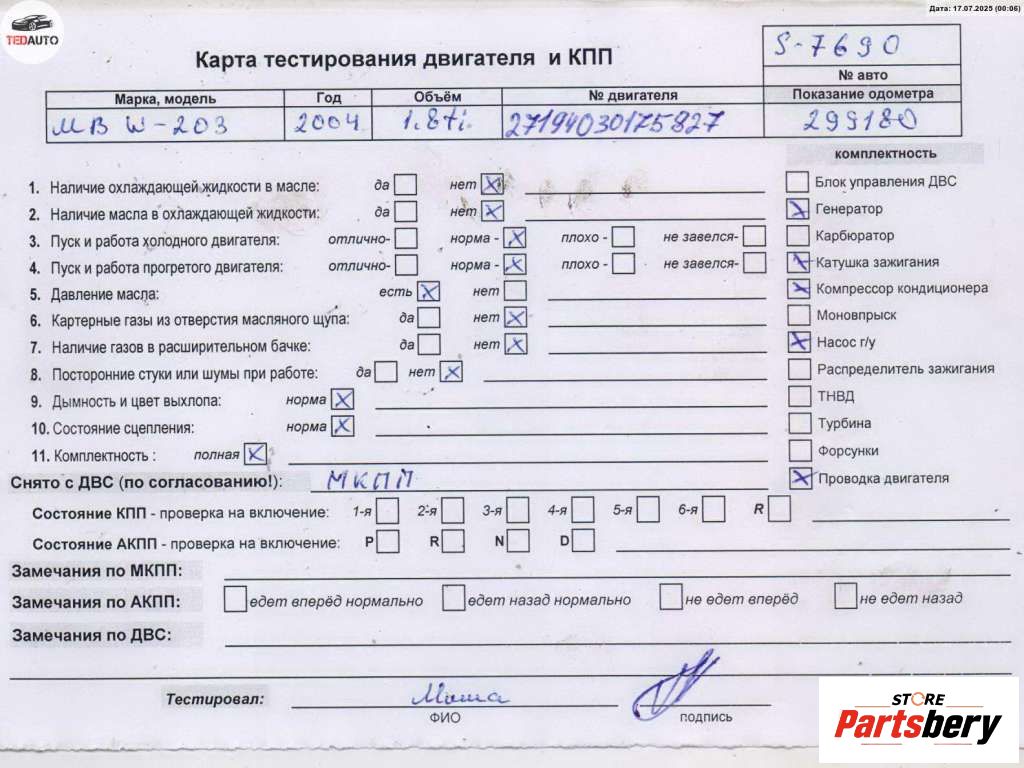 Дата: 17.07.2025 (00:06)
TEDAUTO
S-7690
Карта тестирования двигателя и КПП
№ авто
Марка, модель Год Объём № двигателя Показание одометра
MB W-203 2004 1.8ti. 27194030175827 299180
комплектность
1. Наличие охлаждающей жидкости в масле: да нет Блок управления ДВС
2. Наличие масла в охлаждающей жидкости: да нет Генератор
3. Пуск и работа холодного двигателя: отлично- норма - плохо - не завелся- Карбюратор
4. Пуск и работа прогретого двигателя: отлично- норма - плохо - не завелся- Катушка зажигания
5. Давление масла: есть нет Компрессор кондиционера
6. Картерные газы из отверстия масляного щупа: да нет Моновпрыск
7. Наличие газов в расширительном бачке: да нет Насос г/у
8. Посторонние стуки или шумы при работе: да нет Распределитель зажигания
9. Дымность и цвет выхлопа: норма ТНВД
10. Состояние сцепления: норма Турбина
11. Комплектность : полная Форсунки
Снято с ДВС (по согласованию!): МКПП Проводка двигателя
Состояние КПП - проверка на включение: 1-я 2-я 3-я 4-я 5-я 6-я R
Состояние АКПП - проверка на включение: P R N D
Замечания по МКПП:
Замечания по АКПП: едет вперёд нормально едет назад нормально не едет вперёд не едет назад
Замечания по ДВС:
Тестировал: Миша
ФИО подпись
STORE
Partsbery